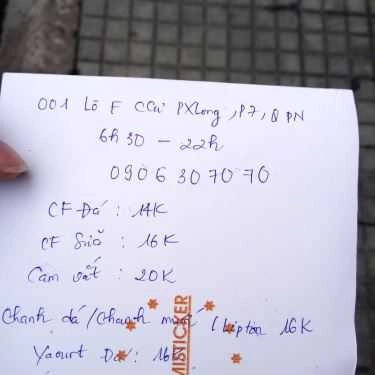 001 Lô F CCư PXLong, P7, Q PN
6h30 - 22h
0906 30 70 70
CF Đá : 14K
CF Sữa : 16K
Cam vắt : 20K
Chanh đá / Chanh muối / Lipton 16K
Yaourt Đá : 16K
MISTICKER